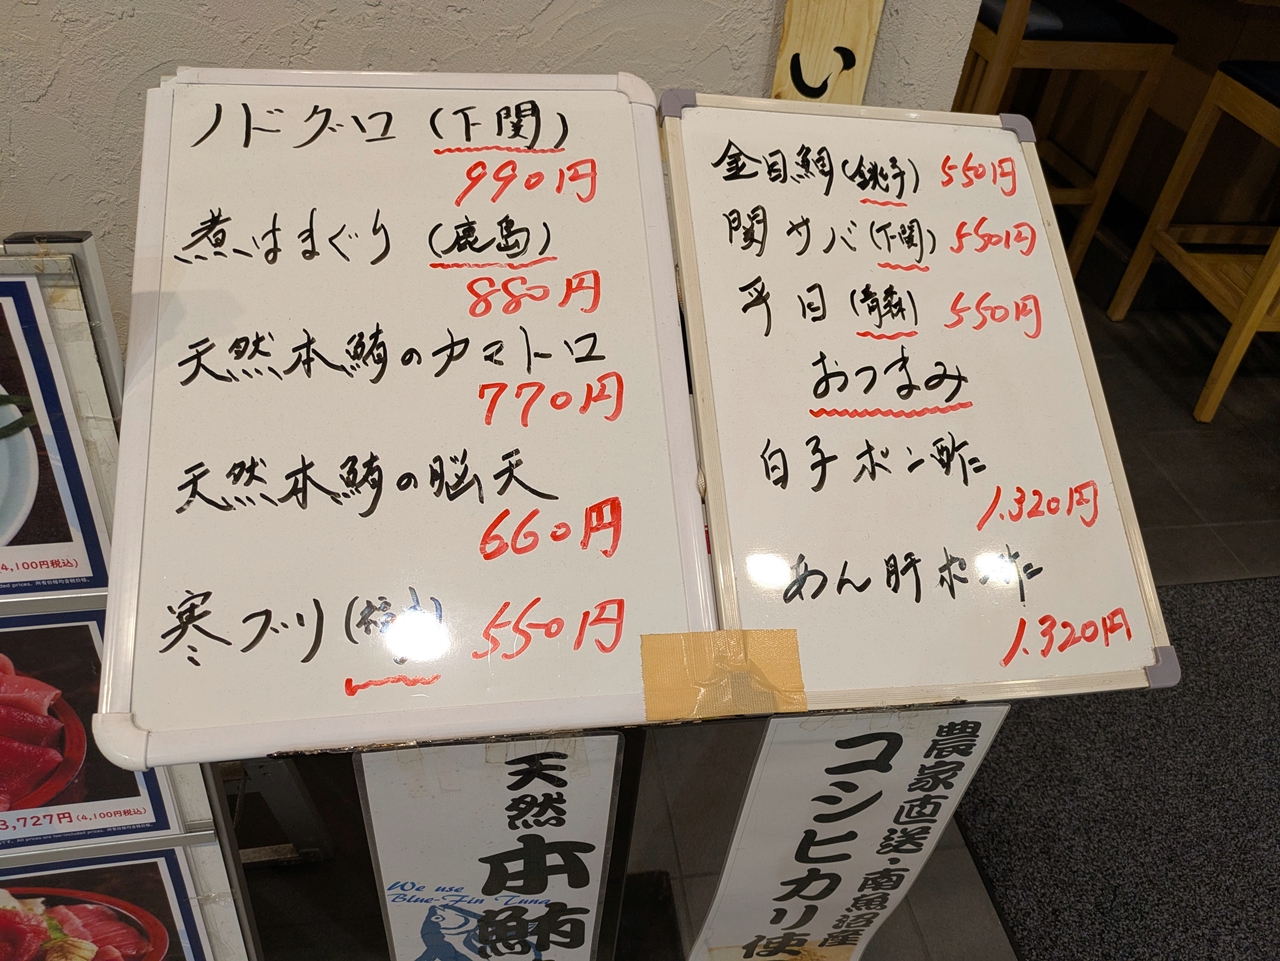 ノドグロ(下関)
990円
煮はまぐり(鹿島)
880円
天然本鮪のカマトロ
770円
天然本鮪の脳天
660円
寒ブリ(福
550円
い
金目鯛(銚子) 550円
関サバ(下関) 550円
平目(青森) 550円
おつまみ
白子ポン酢
1.320円
あん肝ポン酢
1.320円
4,100円税込)
3,727円(4,100円税込)
天然本鮪
We use
Blue-Fin Tuna
農家直送・南魚沼産
コシヒカリ使